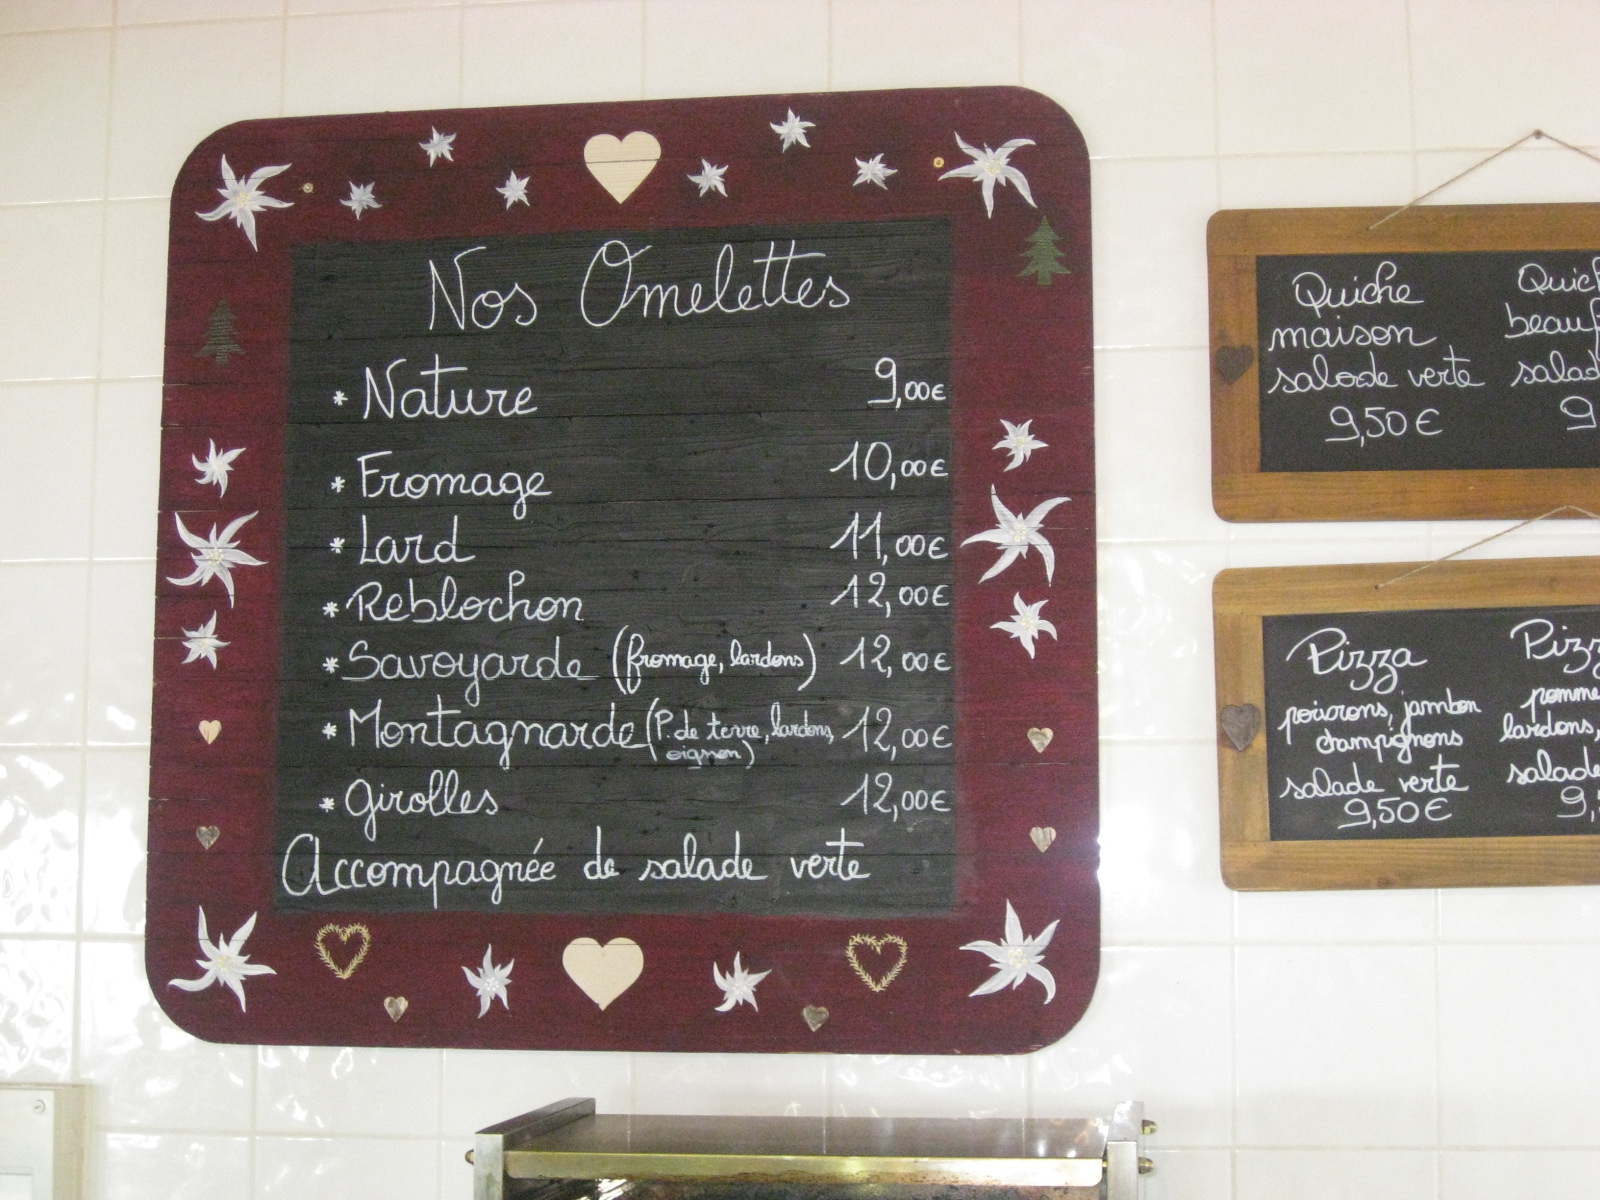 Nos Omelettes
* Nature 9,00€
* Fromage 10,00€
* Lard 11,00€
* Reblochon 12,00€
* Savoyarde (fromage, lardons) 12,00€
* Montagnarde (P. de terre, lardons, 12,00€
oignon)
* Girolles 12,00€
Accompagnée de salade verte
Quiche
maison
salade verte
9,50€
Pizza
poivrons, jambon
champignons
salade verte
9,50€
Pizz
pomme
lardons,
salade
9,